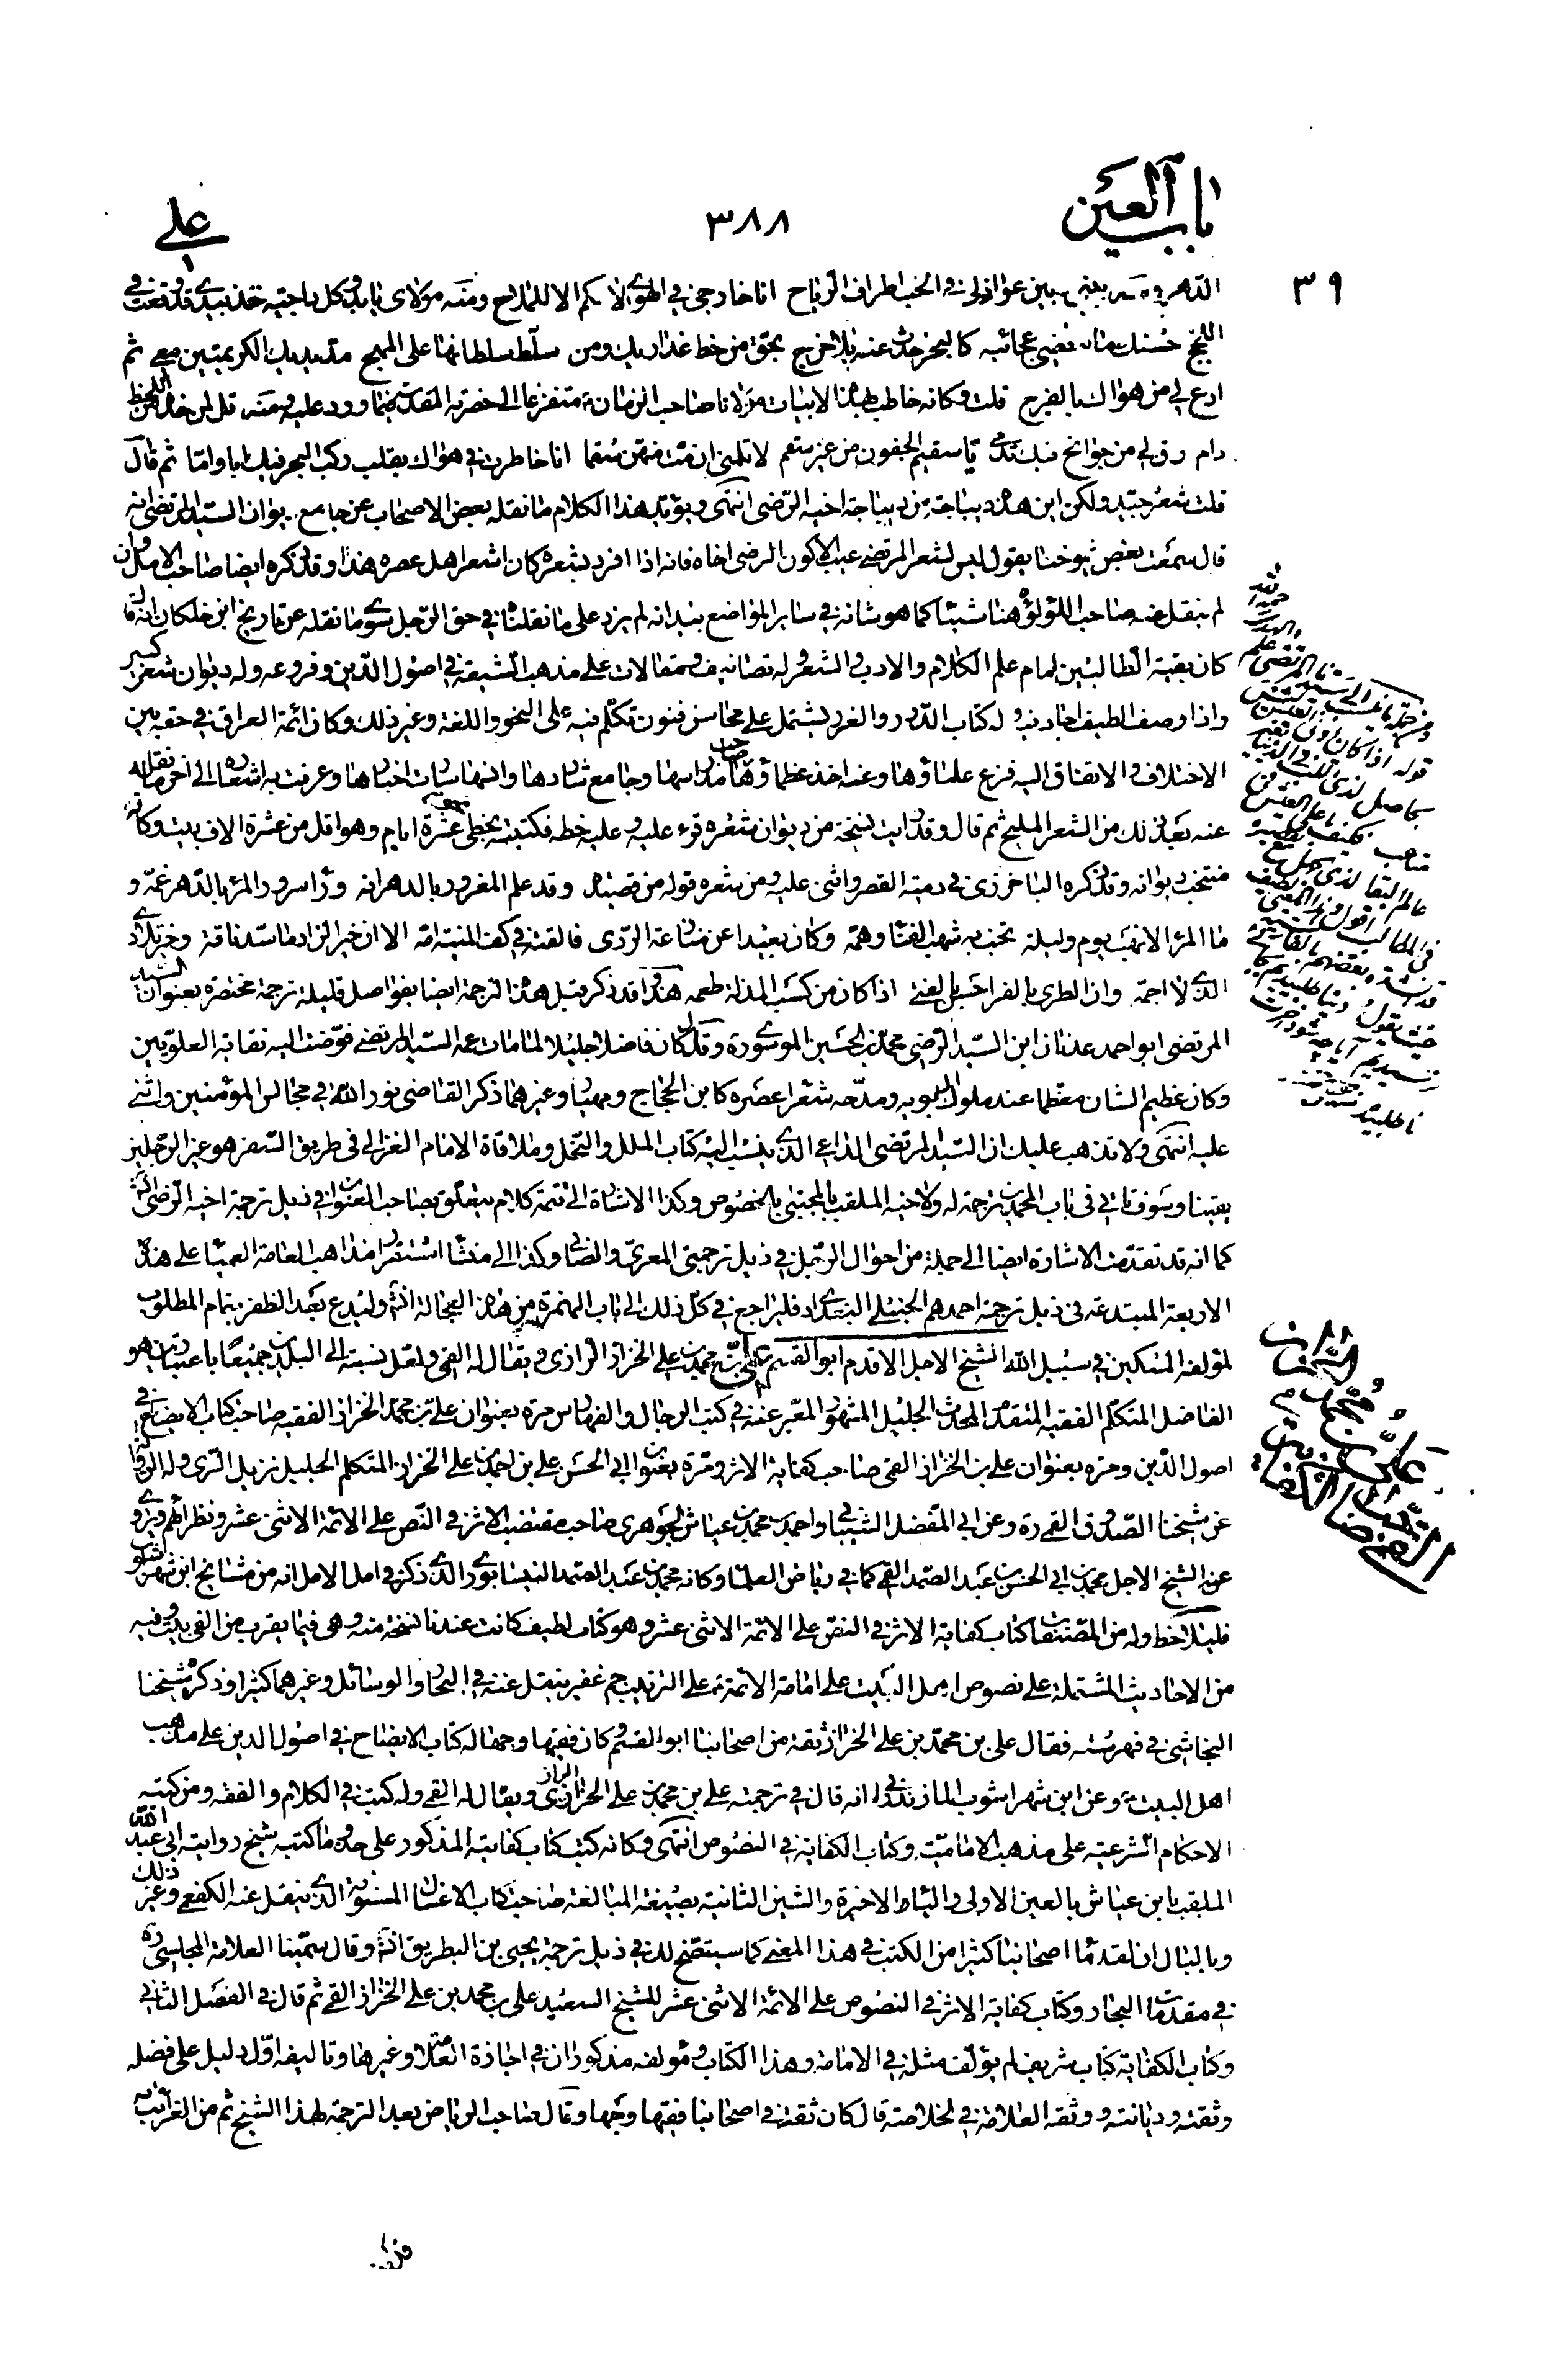 باب العين
٣٨٨
علي
٣٩
الدهر بيني وبين عواذلي في الحب اطراف الرياح انا خارجي في الهوى لا حكم الا للملاح ومنه مولاى يا بدر كل داجية خذ بيدى قد وقعت في
اللجج حسنك ما تنقضي عجائبه كالبحر حدث عنه بلا حرج بحق من خط عذاريك ومن سلط سلطانها على المهج مد يديك الكريمتين معي ثم
ادع لي من هواك بالفرج قلت وكانه خاطب بهذا الابيات مولانا صاحب الزمان متضرعا الى حضرته المقدسة فيما ورد عليه ومنه قل لمن خده من اللحظ
دام رق لي من جوانح فيك تدمى يا سقيم الجفون من غير سقم لا تلمني ان مت منهن سقما انا خاطرت في هواك بقلب ركب البحر فيك اما واما ثم قال
قلت شعر جيد ولكن اين هذه ديباجة من ديباجة اخيه الرضى انتهى ويؤيد هذا الكلام ما نقله بعض الاصحاب عن جامع ديوان السيد المرتضى انه
قال سمعت بعض شيوخنا يقول ليس لشعر المرتضى عيب الا كون الرضى اخاه فانه اذا افرد بشعره كان اشعر اهل عصره هذا وقد ذكره ايضا صاحب الامل وان
لم ينقل عنه صاحب اللؤلؤة هنا شيئا كما هو شانه في ساير المواضع بيد انه لم يزد على ما نقلناه في حق الرجل سوى ما نقله عن تاريخ ابن خلكان انه قال
كان نقيب الطالبين امام علم الكلام والادب والشعر وله تصانيف ومقالات على مذهب الشيعة في اصول الدين وفروعه وله ديوان شعر كبير
واذا وصف الطيف اجاد فيه وله كتاب الدرر والغرر يشتمل على محاسن فنون تكلم فيه على النحو واللغة وغير ذلك وكان ائمة العراق في حقه بين
الاختلاف والاتفاق اليه فزع علماؤها وعنه اخذ عظماؤها صاحب مدارسها وجامع شاردها وانسها سارت اخبارها وعرفت به اشعاره الى اخر ما نقله
عنه بعد ذلك من الشعر المليح ثم قال وقد رايت نسخة من ديوان شعره قرء عليه وعليه خطه فكتبته بخطى نحو عشرة ايام وهو اقل من عشرة الاف بيت وكانه
منتخب ديوانه وقد ذكره الباخرزى في دمية القصر واثنى عليه ومن شعره قوله من قصيدة وقد علم المغرور بالدهر انه وراء سرور المرء بالدهر غمه و
ما المرء الا نهب يوم وليلة تخب به شهب الفناء ودهمه وكان بعيدا عن منازعة الردى فالقته في كف المنية امه الا ان خير الزاد ما سد فاقة وخير تلادى
الذى لا اجمه وان الطوى بالعز احسن بالفتى اذا كان من كسب المذلة طعمه هذا وقد ذكر قبل هذا الترجمة ايضا بفواصل قليلة ترجمة مختصرة بعنوان السيد
المرتضى ابو احمد عدنان ابن السيد الرضى محمد بن الحسين الموسوى ره وقال كان فاضلا جليلا لما مات عمه السيد المرتضى فوضت اليه نقابة العلويين
وكان عظيم الشان معظما عند ملوك ال بويه ومدحه شعراء عصره كابن الحجاج ومهيار وغيرهما ذكر القاضى نور الله في مجالس المؤمنين واثنى
عليه انتهى ولا تذهب عليك ان السيد المرتضى الداعى الذى ينسب اليه كتاب الملل والنحل وملاقاة الامام الغزالى في طريق السفر هو غير الرجلين
يقينا وسوف ياتى في باب المحمدين ترجمة له ولاخيه الملقب بالمجتبى بالخصوص وكذا الاشارة الى تتمة كلام يتعلق بصاحب العنوان في ذيل ترجمة اخيه الرضى انشاء
كما انه قد تقدمت الاشارة ايضا الى جملة من احوال الرجل في ذيل ترجمتى المعرى والصابى وكذا الى منشأ استقرار مذاهب العامة العمياء على هذه
الاربعة المبتدعة في ذيل ترجمة احمدهم الحنبلى البغدادى فليراجع في كل ذلك الى باب الهمزة من هذه العجالة انشاء وليدع بعد الظفر بتمام المطلوب
لمؤلفه المسكين في سبيل الله الشيخ الاجل الاقدم ابو القسم على بن محمد بن على الخزاز الرازى ويقال له القمى ولعل نسبته الى البلدين جميعا باعتبارين هو
الفاضل المتكلم الفقيه المتقدم المحدث الجليل المشهور المعبر عنه في كتب الرجال والفهارس مرة بعنوان على بن محمد الخزاز الفقيه صاحب كتاب الايضاح في
اصول الدين ومرة بعنوان على بن الخزاز القمى صاحب كفاية الاثر ومرة بعنوان ابى الحسن على بن احمد بن على الخزاز المتكلم الجليل نزيل الرى وله الرواية
عن شيخنا الصدوق القمى ره وعن ابى المفضل الشيبانى واحمد بن محمد بن عياش الجوهرى صاحب مقتضب الاثر في النص على الائمة الاثنى عشر ونظرائهم ويروى
عنه الشيخ الاجل محمد بن ابى الحسن بن عبد الصمد القمى كما في رياض العلماء وكانه محمد بن عبد الصمد النيسابورى الذى ذكر في امل الامل انه من مشايخ ابن شهر اشوب
فليلاحظ وله من المصنفات كتاب كفاية الاثر في النص على الائمة الاثنى عشر وهو كتاب لطيف كانت عندنا نسخة منه وهى فيما يقرب من الفى بيت وفيه
من الاحاديث المشتملة على نصوص اهل البيت على امامة الائمة على الترتيب جم غفير ينقل عنه في البحار والوسائل وغيرهما كثيرا وذكره شيخنا
النجاشى في فهرسته فقال على بن محمد بن على الخزاز ثقة من اصحابنا ابو القسم وكان فقيها وجها له كتاب الايضاح في اصول الدين على مذهب
اهل البيت وعن ابن شهر اشوب المازندرانى انه قال في ترجمته على بن محمد بن على الخزاز الرازى ويقال له القمى وله كتب في الكلام والفقه ومن كتبه
الاحكام الشرعية على مذهب الامامية وكتاب الكفاية في النصوص انتهى وكانه كتب كتاب كفايته المذكور على حذو ما كتب شيخ روايته ابى عبد الله
الملقب بابن عياش بالعين الاولى والياء الاخيرة والشين الثانية بصيغة المبالغة صاحب كتاب الاغسال المسنونة الذى ينقل عنه الكفعمى وغير ذلك
وبالبال ان لقدماء اصحابنا كثيرا من الكتب في هذا المعنى كما سيتضح لك في ذيل ترجمة يحيى بن البطريق انشاء وقال سمينا العلامة المجلسى ره
في مقدمات البحار وكتاب كفاية الاثر في النصوص على الائمة الاثنى عشر للشيخ السعيد على بن محمد بن على الخزاز القمى ثم قال في الفصل الثانى
وكتاب الكفاية كتاب شريف لم يؤلف مثله في الامامة وهذا الكتاب ومؤلفه مذكوران في اجازة العلامة وغيرها وتاليفه اول دليل على فضله
وثقته وديانته ووثقه العلامة في الخلاصة قال كان ثقة في اصحابنا فقيها وجها وقال صاحب الرياض بعد الترجمة لهذا الشيخ ثم من الغرائب